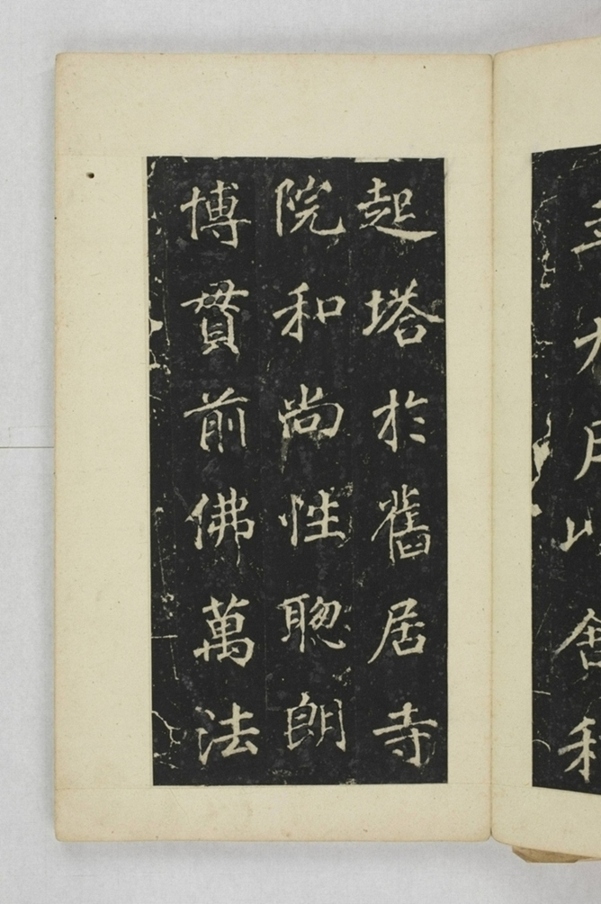 起塔於舊居寺
院和尚性聦朗
博貫前佛萬法